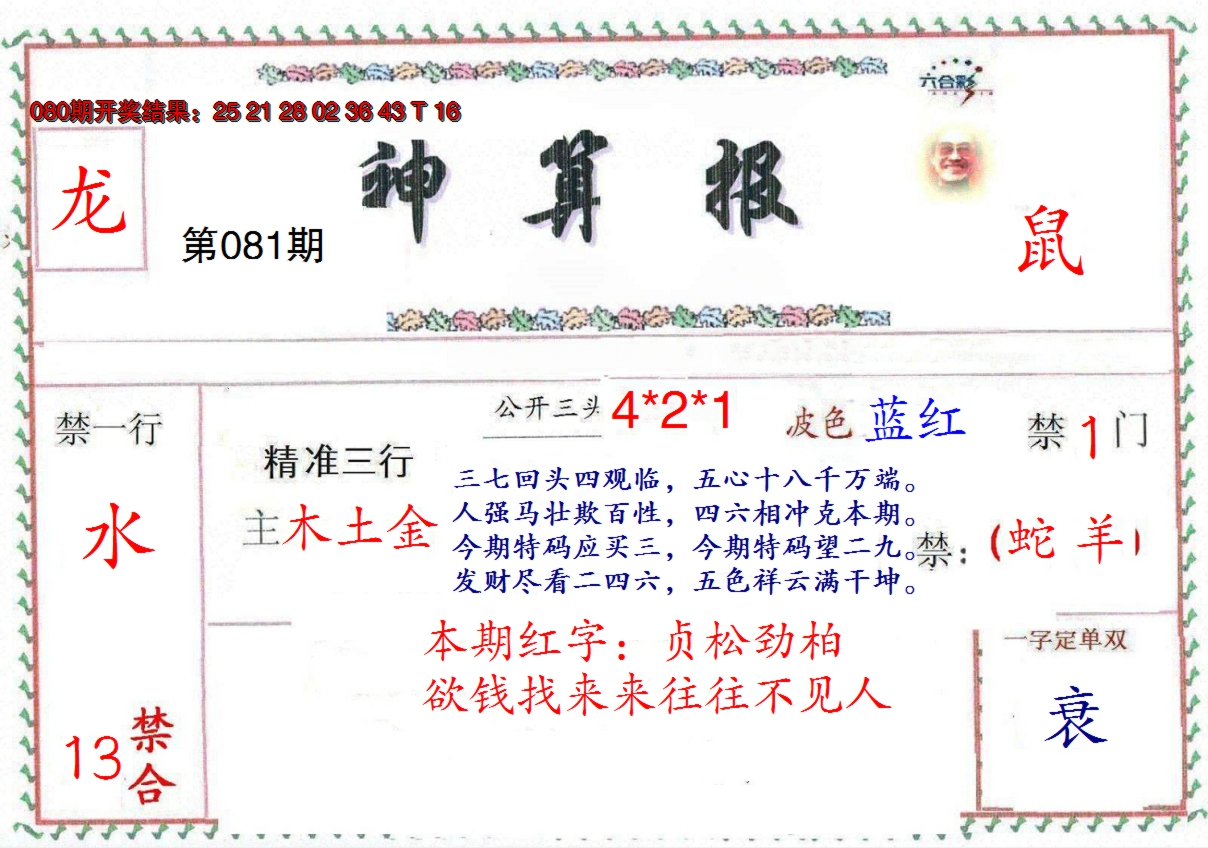 六合彩
080期开奖结果：25 21 28 02 36 43 T 16
龙
神算报
第081期
鼠
禁一行
水
13
禁合
公开三头 4*2*1
波色 蓝红
禁1门
精准三行
主木土金
三七回头四观临，五心十八千万端。
人强马壮欺百性，四六相冲克本期。
今期特码应买三，今期特码望二九。
发财尽看二四六，五色祥云满干坤。
禁：（蛇 羊）
本期红字：贞松劲柏
欲钱找来来往往不见人
一字定单双
衰